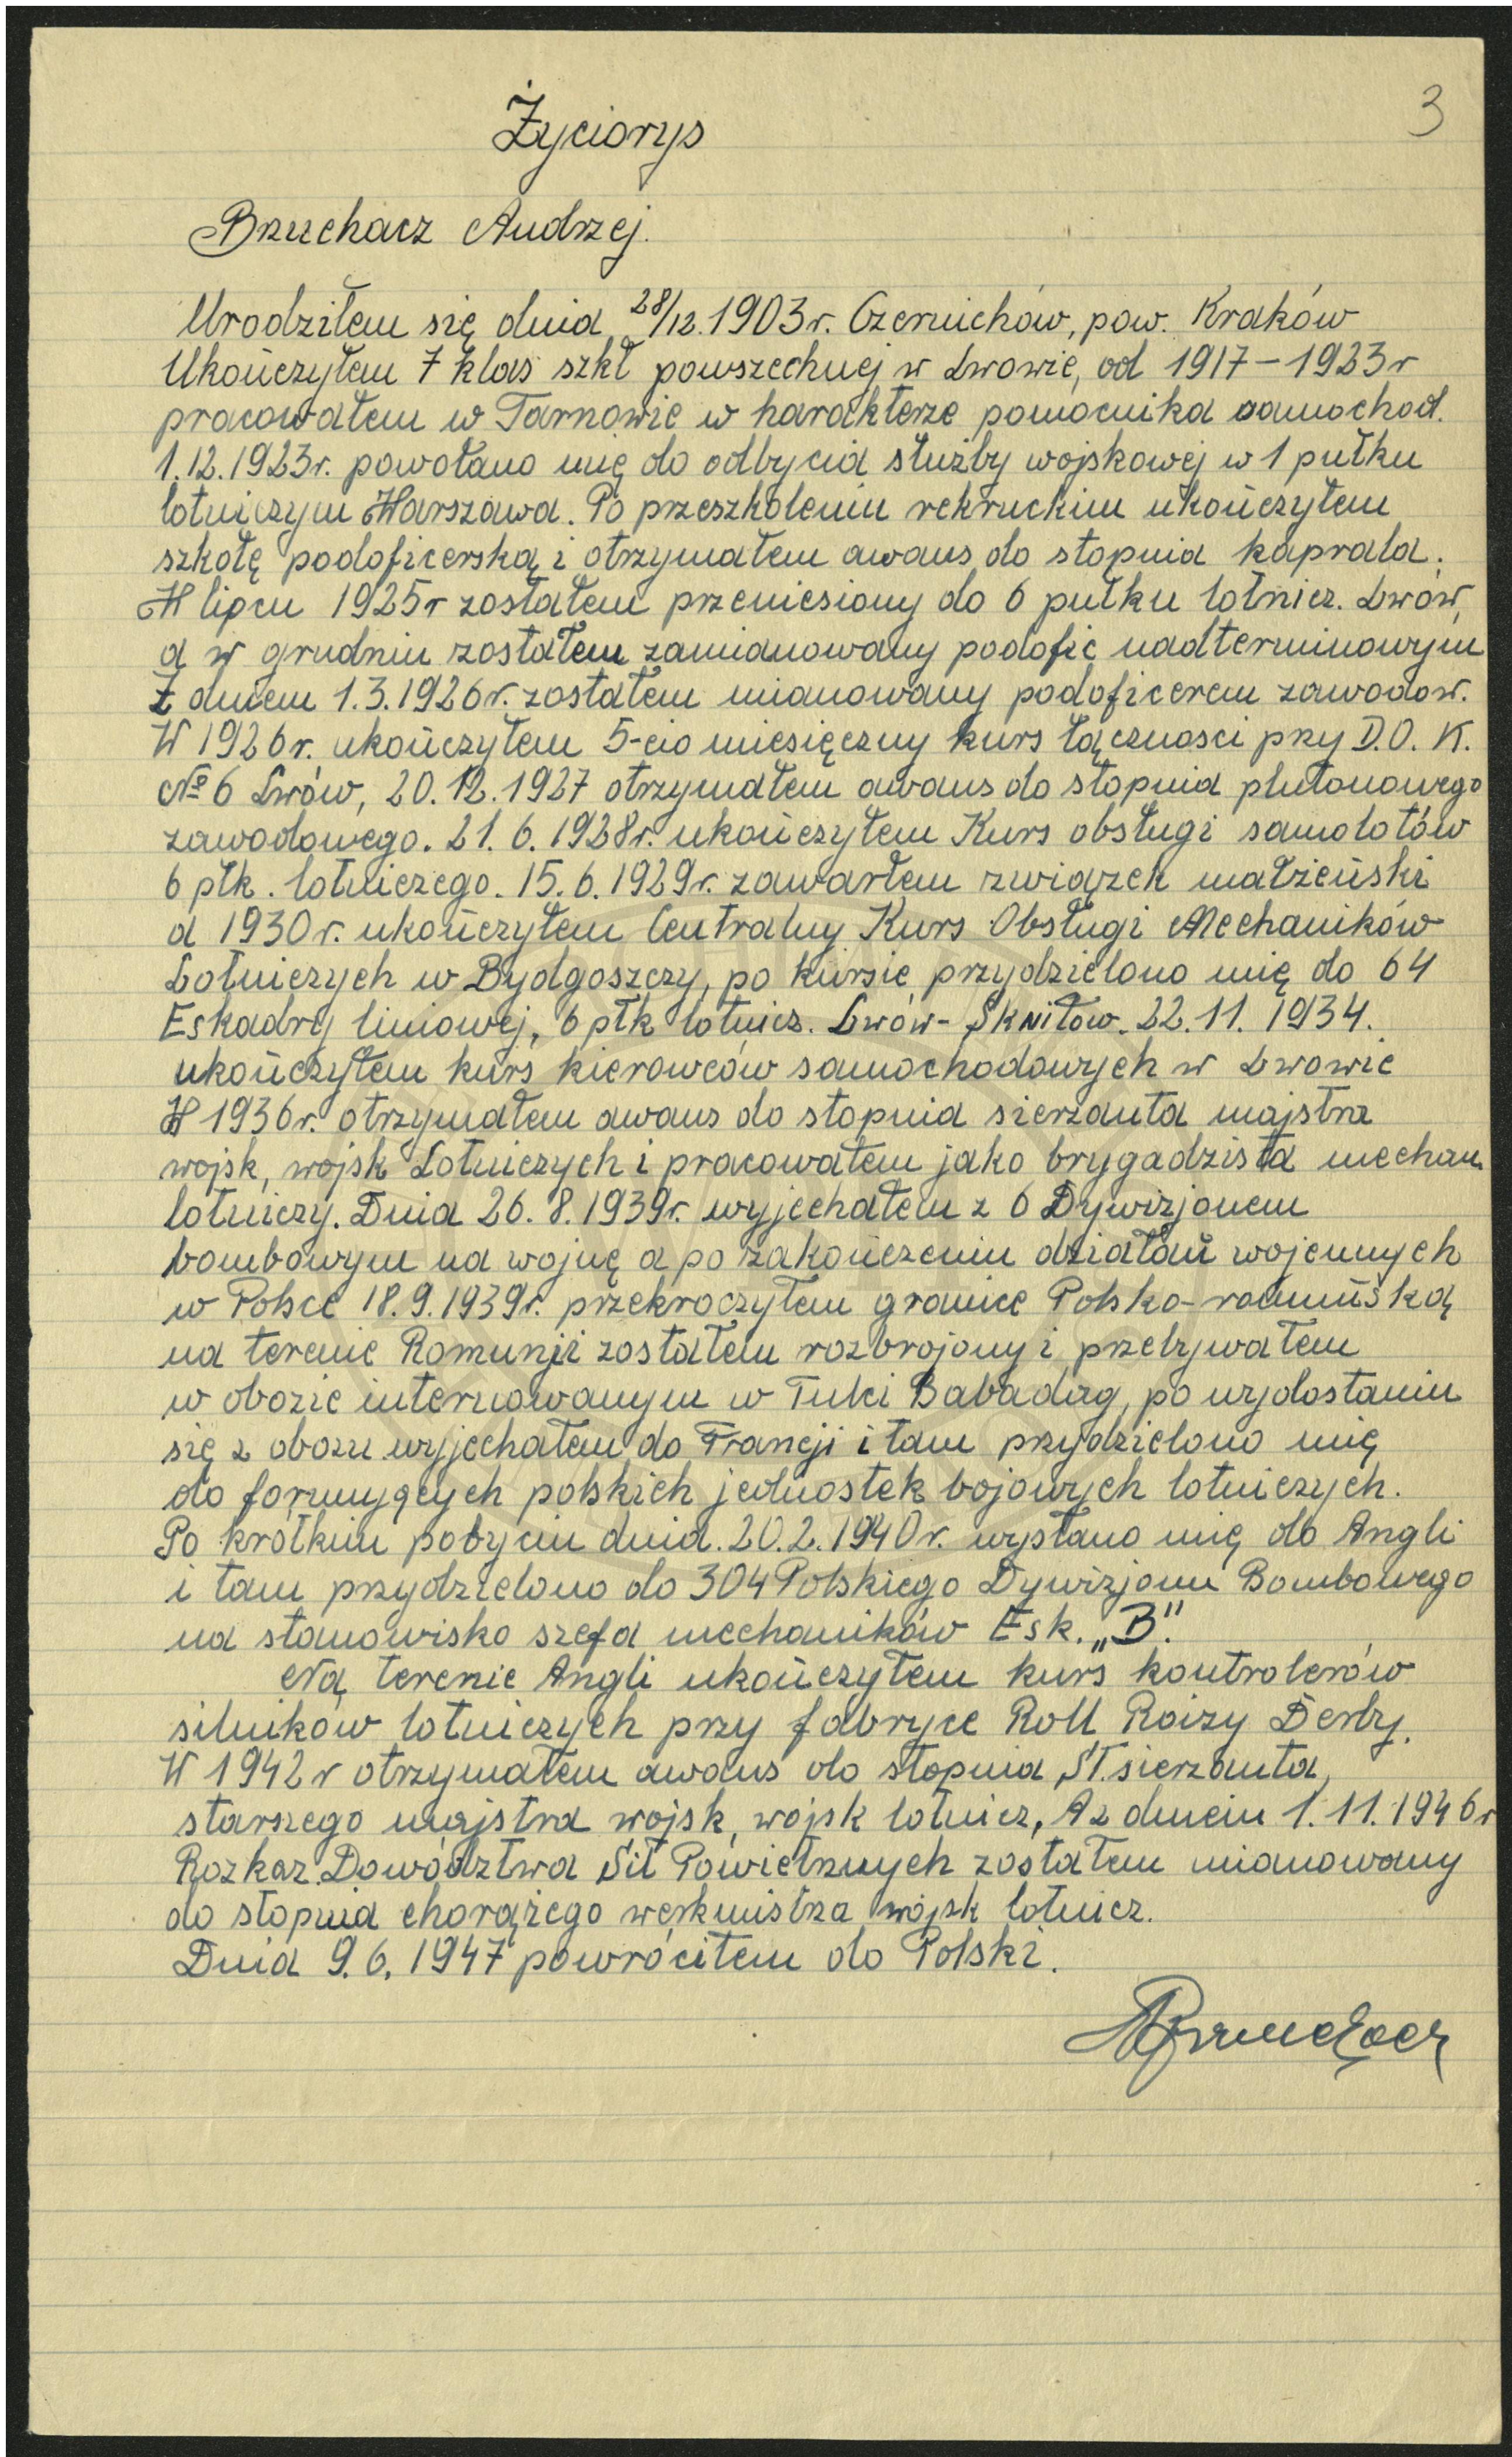 3
Życiorys
Brzuchacz Andrzej.
Urodziłem się dnia 28/12.1903r. Czernichów, pow. Kraków
Ukończyłem 7 klas szkł powszechnej w Lwowie, od 1917-1923r
pracowałem w Tarnowie w harakterze pomocnika samochod.
1.12.1923r. powołano mię do odbycia służby wojskowej w 1 pułku
lotniczym Warszawa. Po przeszkoleniu rekruckim ukończyłem
szkołę podoficerską i otrzymałem awans do stopnia kaprala.
W lipcu 1925r zostałem przeniesiony do 6 pułku lotnicz. Lwów,
a w grudniu zostałem zamianowany podofic nadterminowym
Z dniem 1.3.1926r. zostałem mianowany podoficerem zawodow.
W 1926r. ukończyłem 5-cio miesięczny kurs łączności przy D.O.K.
№ 6 Lwów, 20.12.1927 otrzymałem awans do stopnia plutonowego
zawodowego. 21.6.1928r. ukończyłem Kurs obsługi samolotów
6 płk. lotniczego. 15.6.1929r. zawarłem związek małżeński
a 1930r. ukończyłem Centralny Kurs Obsługi Mechaników
Lotniczych w Bydgoszczy, po kursie przydzielono mię do 64
Eskadry liniowej, 6 płk lotnicz. Lwów-Skniłow. 22.11.1934.
ukończyłem kurs kierowców samochodowych w Lwowie
W 1936r. otrzymałem awans do stopnia sierżanta majstra
wojsk, wojsk Lotniczych i pracowałem jako brygadzista mechan.
lotniczy. Dnia 26.8.1939r. wyjechałem z 6 Dywizjonem
bombowym na wojnę a po zakończeniu działań wojennych
w Polsce 18.9.1939r. przekroczyłem granice Polsko-rumuńską
na terenie Romunji zostałem rozbrojony i przebywałem
w obozie internowanym w Tulci Babadag, po wydostaniu
się z obozu wyjechałem do Francji i tam przydzielono mię
do formyących polskich jednostek bojowych lotniczych.
Po krótkim pobyciu dnia. 20.2.1940r. wysłano mię do Angli
i tam przydzielono do 304 Polskiego Dywizjonu Bombowego
na stanowisko szefa mechaników Esk. „B".
Na terenie Angli ukończyłem kurs kontrolerów
silników lotniczych przy fabryce Roll Roizy Derby.
W 1942r otrzymałem awans do stopnia St. sierżanta,
starszego majstra wojsk, wojsk lotnicz, A z dniem 1.11.1946r
Rozkaz. Dowództwa Sił Powietrznych zostałem mianowany
do stopnia chorążego werkmistrza wojsk lotnicz.
Dnia 9.6.1947 powróciłem do Polski.
ABrzuchacz